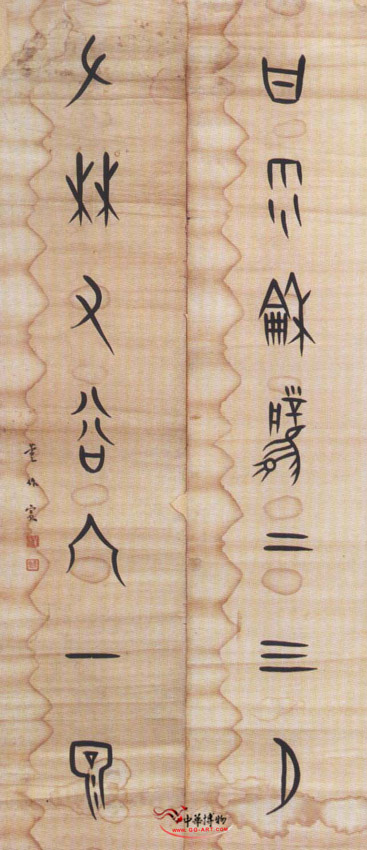 甘雨龢風二三月
林又谷入一泉
董作賓
中華博物
www.GG-ART.com